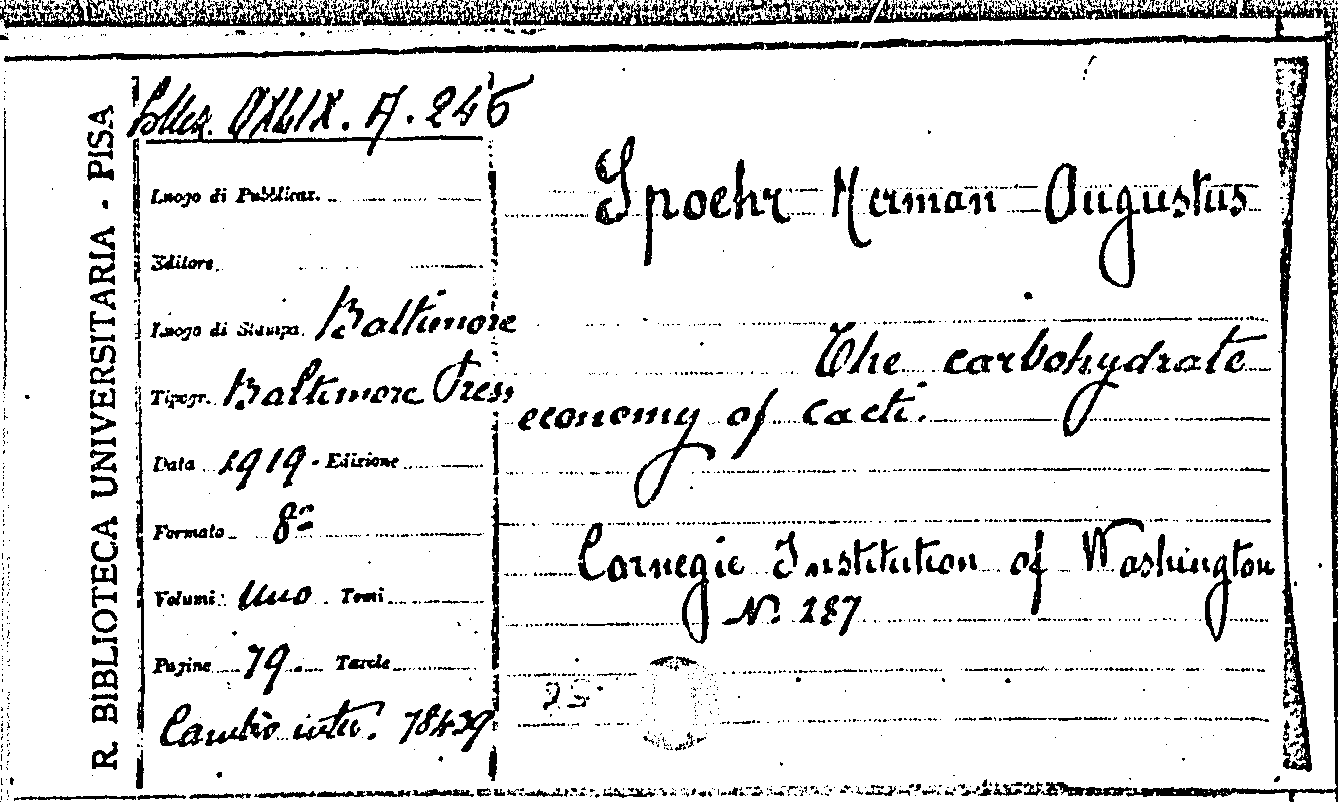 R. BIBLIOTECA UNIVERSITARIA - PISA
A. 245
Luogo di Pubblicaz.
Editore
Luogo di Stampa. Baltimore
Tipogr. Baltimore Press
Data 1919 - Edizione
Formato 8º
Volumi: Uno Tomi
Pagine 79. Tavole
Cambio inter. 78439
Spoehr Herman Augustus
The carbohydrate
economy of cacti.
Carnegie Institution of Washington
Nº 287